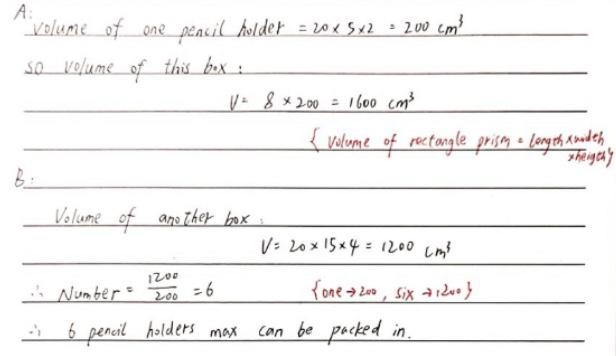 A:
Volume of one pencil holder = 20 x 5 x 2 = 200 cm³
so volume of this box :
V = 8 x 200 = 1600 cm³
{ Volume of rectangle prism = longth x width
x heigth }
B:
Volume of another box :
V = 20 x 15 x 4 = 1200 cm³
∴ Number = 1200/200 = 6 { one → 200 , six → 1200 }
∴ 6 pencil holders max can be packed in.